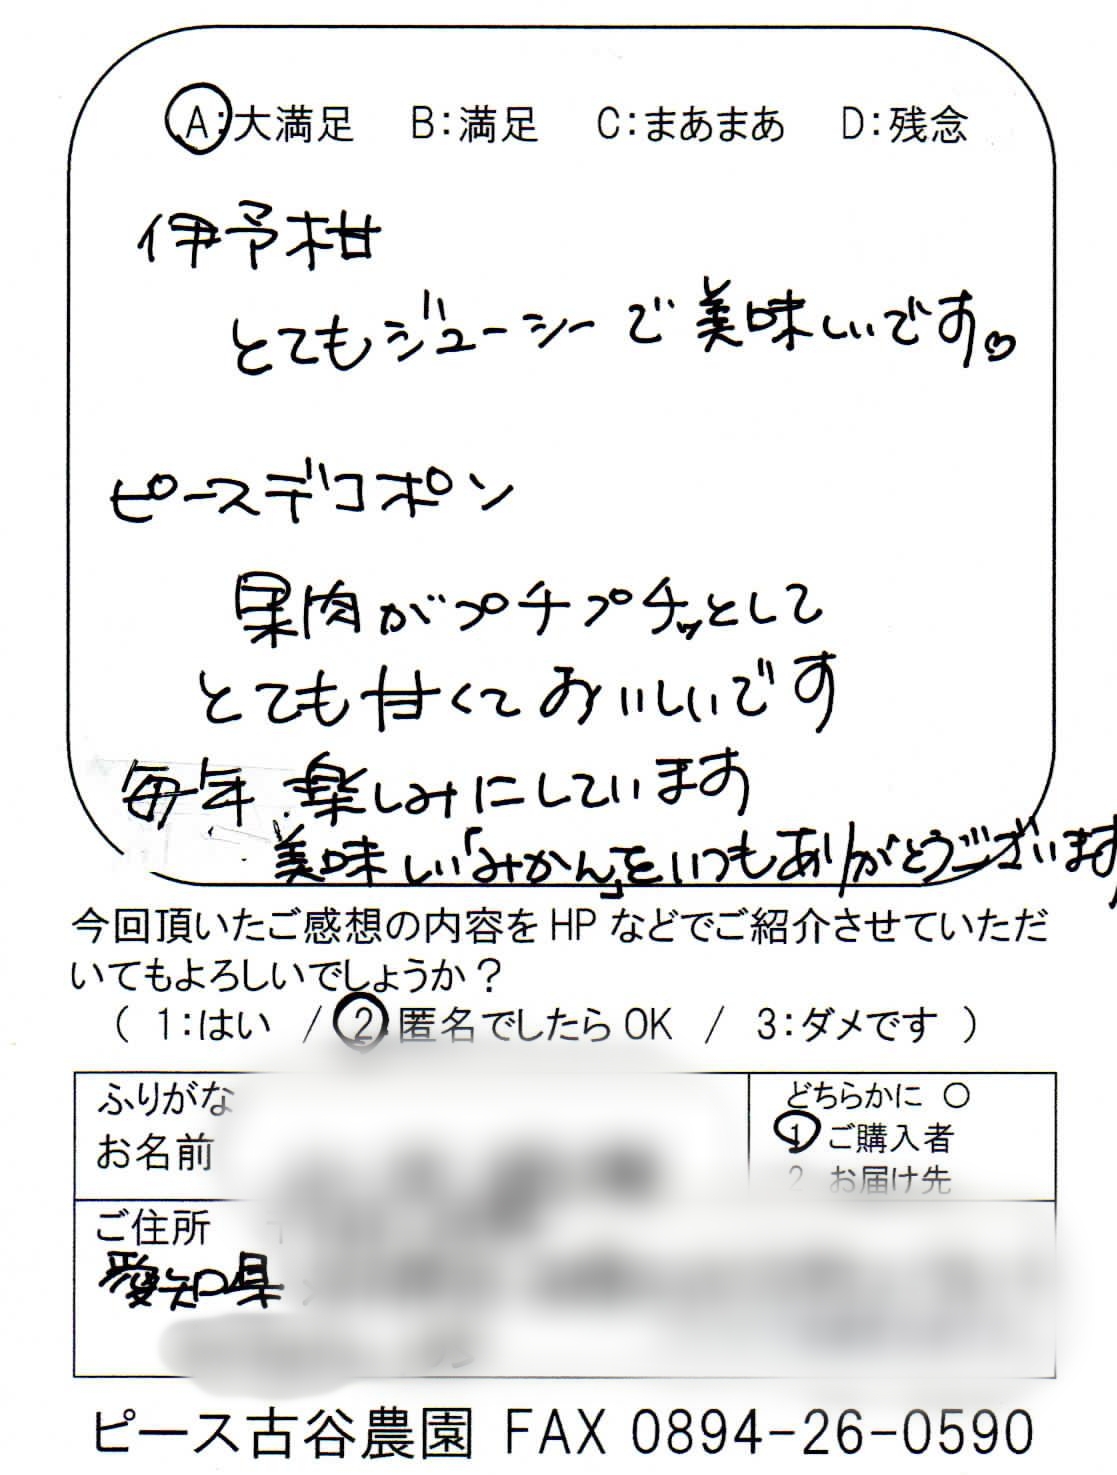 A:大満足 B:満足 C:まあまあ D:残念
伊予柑
とてもジューシーで美味しいです♡
ピースデコポン
果肉がプチプチッとして
とても甘くておいしいです
毎年 楽しみにしています
美味しい「みかん」をいつもありがとうございます
今回頂いたご感想の内容をHPなどでご紹介させていただ
いてもよろしいでしょうか？
( 1:はい / 2:匿名でしたらOK / 3:ダメです )
ふりがな
お名前
どちらかに ○
1 ご購入者
2 お届け先
ご住所 〒
愛知県
ピース古谷農園 FAX 0894-26-0590